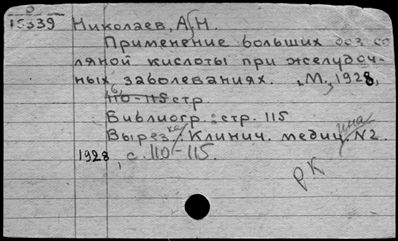 О
15339 Николаев, А. Н.
Применение больших доз со
ляной кислоты при желудоч-
ных заболеваниях. М., 1928,
6,
110-115 стр.
Библиогр.: стр. 115
Вырезка: Клинич. медицина, №2
1928, с. 110-115.
РК